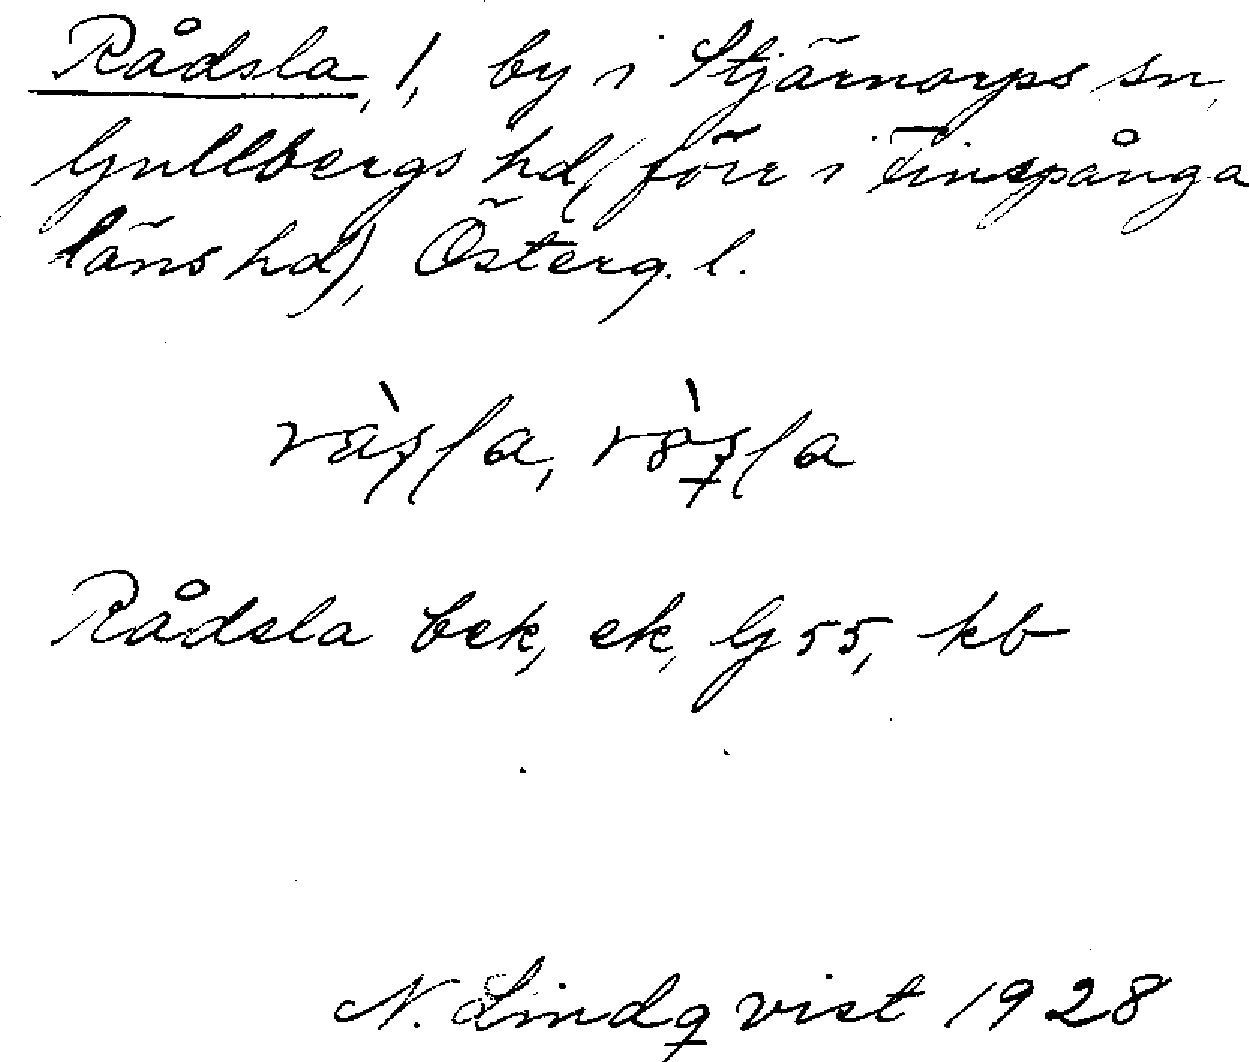 Rådsla, 1, by i Stjärnorps sn,
Gullbergs hd, (förr i Finspånga
läns hd), Österg. l.
Rådsla bek, ek, G 55, kb
N. Lindqvist 1928